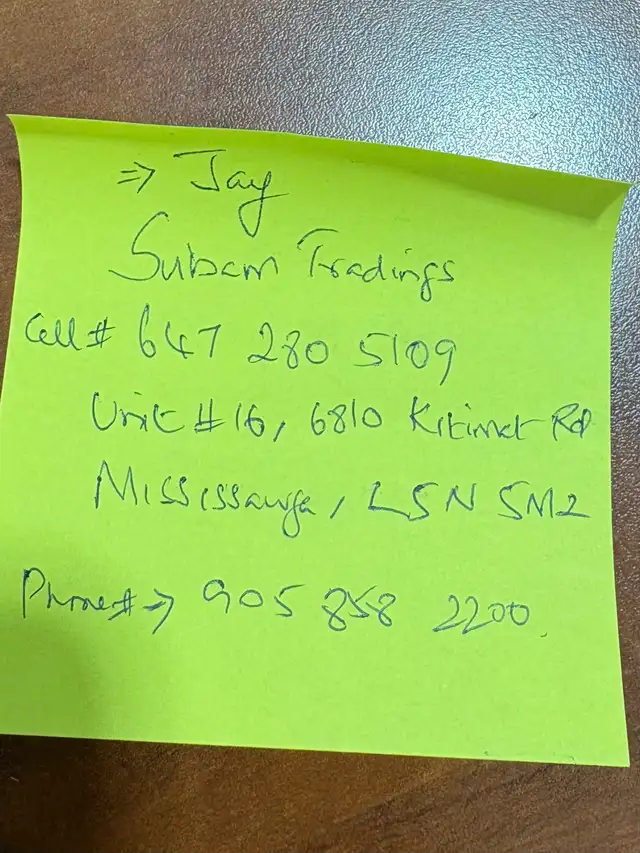 ⇒ Jay
Subam Tradings
Cell # 647 280 5109
Unit # 16, 6810 Kitimat Rd
Mississauga, L5N 5M2
Phone# → 905 858 2200